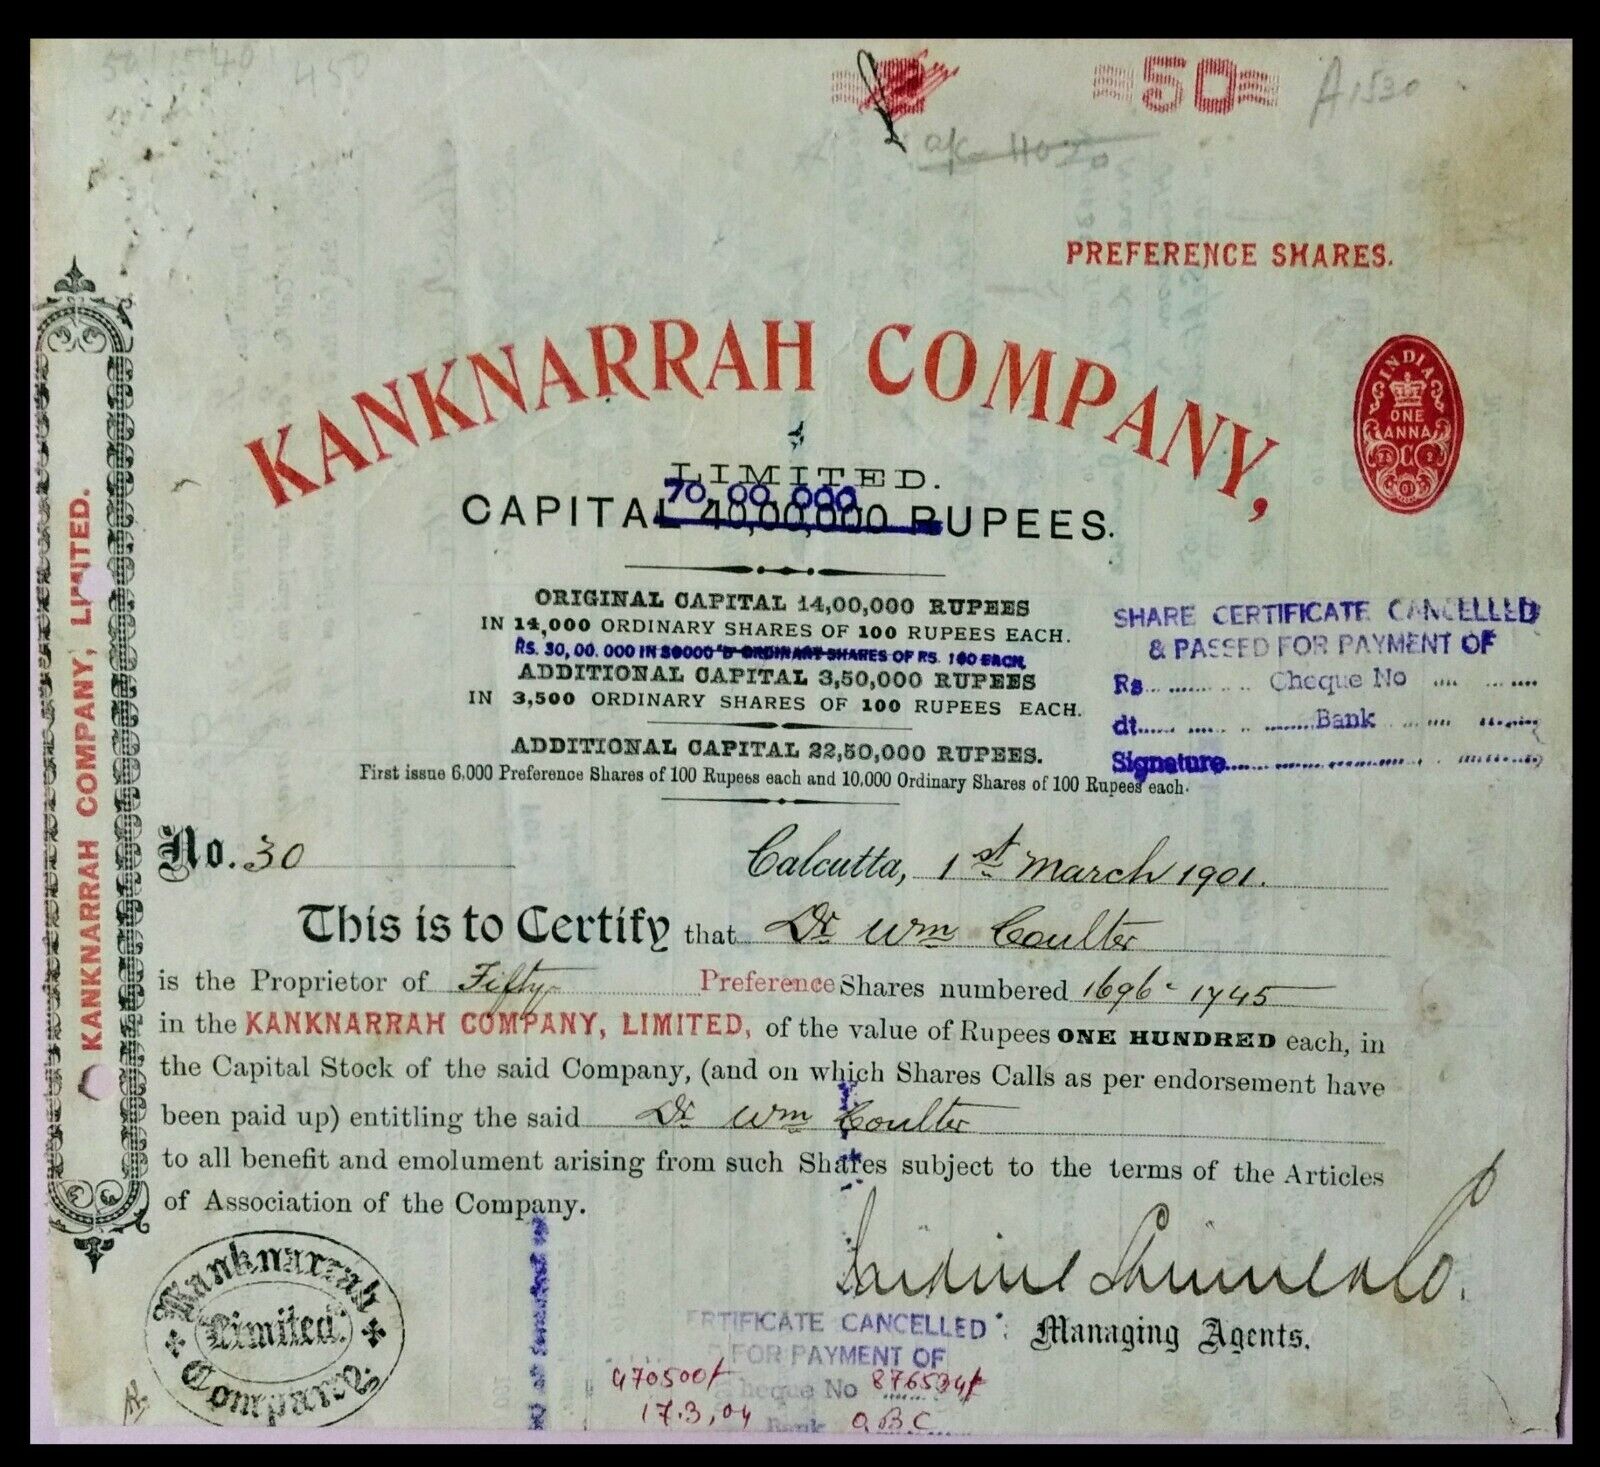 450
50
A1530
PREFERENCE SHARES.
KANKNARRAH COMPANY,
LIMITED.
70,00,000
CAPITAL 40,00,000 RUPEES.
INDIA
ONE
ANNA
C
ORIGINAL CAPITAL 14,00,000 RUPEES
IN 14,000 ORDINARY SHARES OF 100 RUPEES EACH.
RS. 30,00.000 IN 30000 ORDINARY SHARES OF RS. 100 EACH
ADDITIONAL CAPITAL 3,50,000 RUPEES
IN 3,500 ORDINARY SHARES OF 100 RUPEES EACH.
ADDITIONAL CAPITAL 22,50,000 RUPEES.
First issue 6,000 Preference Shares of 100 Rupees each and 10,000 Ordinary Shares of 100 Rupees each.
SHARE CERTIFICATE CANCELLED
& PASSED FOR PAYMENT OF
Rs Cheque No
dt Bank
Signature
KANKNARRAH COMPANY, LIMITED.
No. 30
Calcutta, 1st March 1901.
This is to Certify that Dr Wm Coulter
is the Proprietor of Fifty Preference Shares numbered 1696-1745
in the KANKNARRAH COMPANY, LIMITED, of the value of Rupees ONE HUNDRED each, in
the Capital Stock of the said Company, (and on which Shares Calls as per endorsement have
been paid up) entitling the said Dr Wm Coulter
to all benefit and emolument arising from such Shares subject to the terms of the Articles
of Association of the Company.
Kanknarrah
Limited.
Company.
Jardine Skinner & Co.
Managing Agents.
ERTIFICATE CANCELLED
FOR PAYMENT OF
470500/- heque No 876534/-
17.3.04 Bank OBC